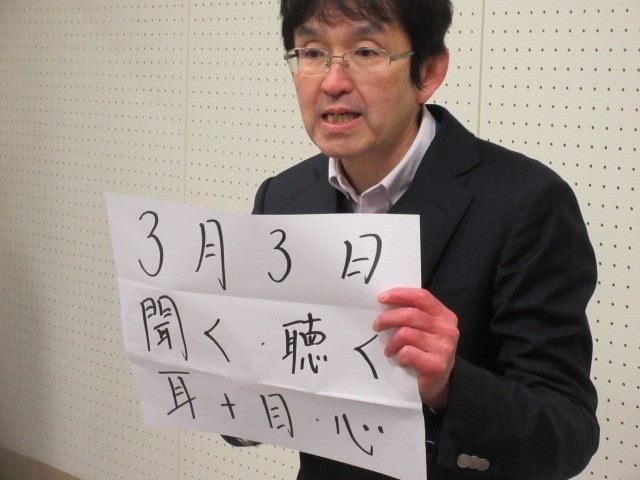 3月3日
聞く・聴く
耳+目・心